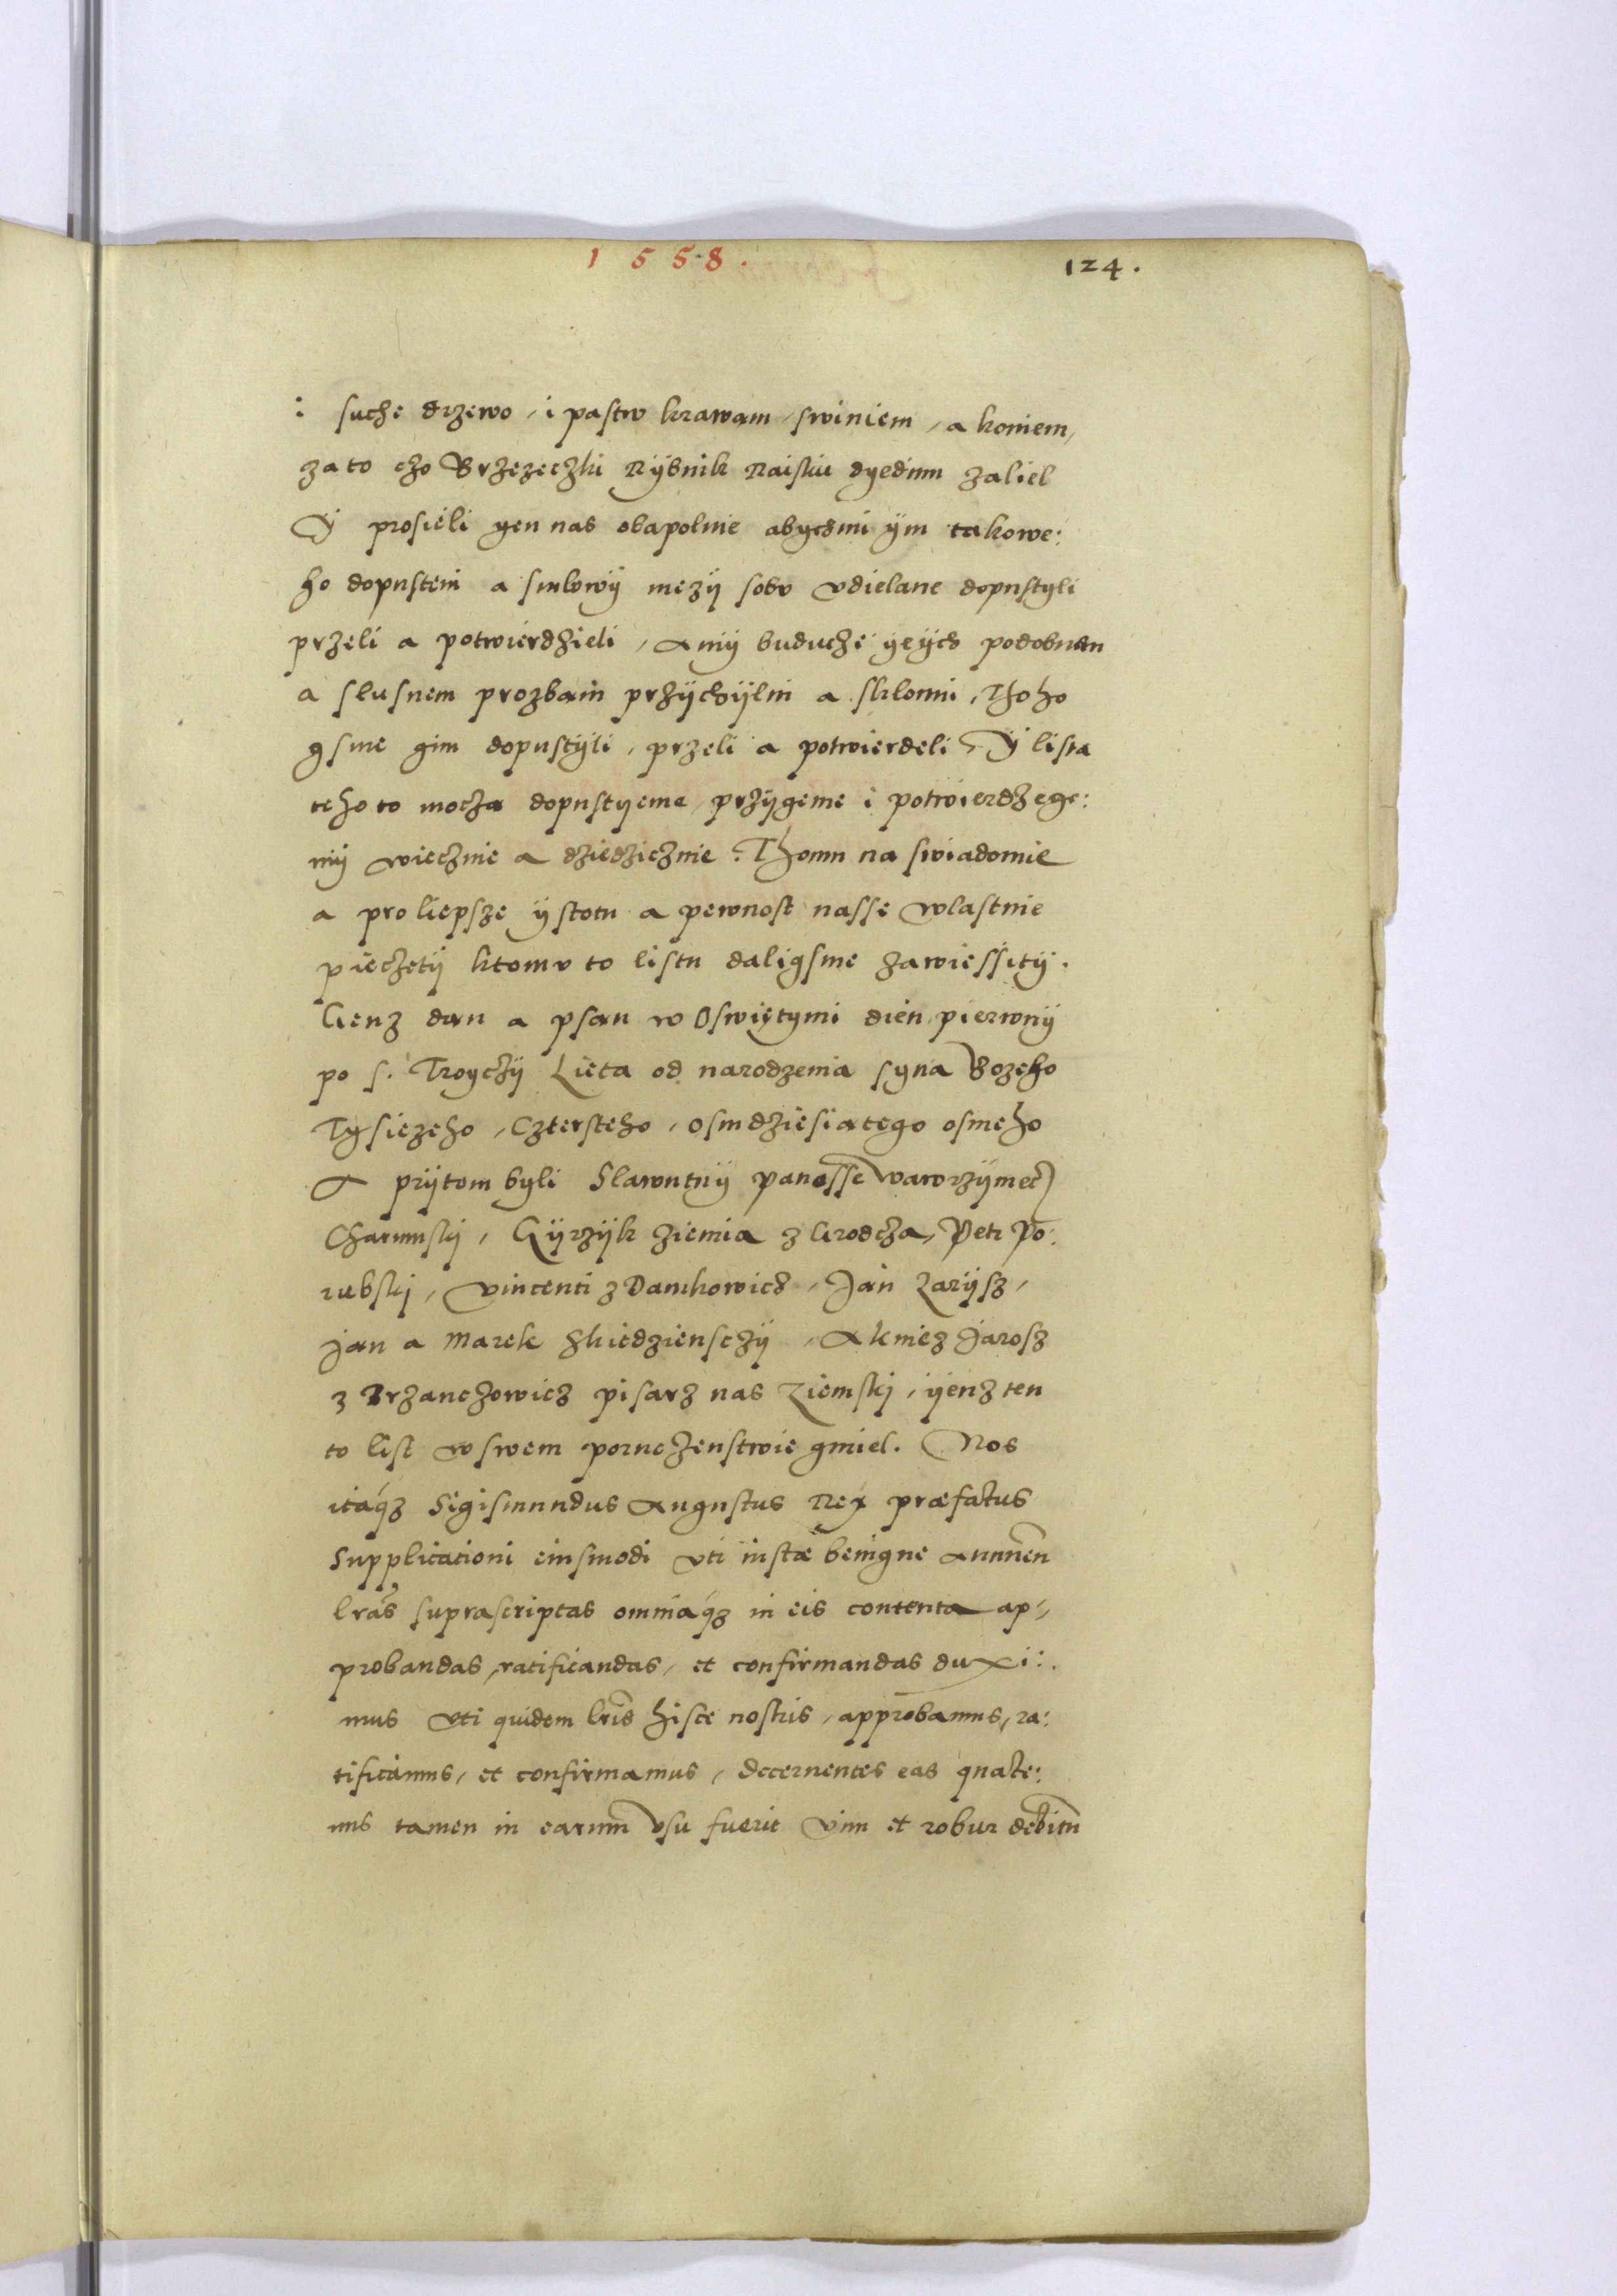 1558.
124.
i suche drzewo, i pastw krawam, swiniem, a koniem,
za to czo Brzezeczki Rybnik Raisku dyedinu zaliel
Ÿ prosieli gen nas obapolnie abychmi ÿm takowe:
ho dopusteni a smlowÿ mezÿ sobu vdielane dopustyli
przeli a potwierdzieli, A mÿ buduchi yeÿch podobnem
a slusnem prozbam przÿchÿlni a sklonni, Thoho
gsme gim dopustÿli, przeli a potwierdeli, Ÿ lista
tehoto mocza dopustyeme, przÿgeme i potwierdzege:
mÿ wiecznie a dziedzicznie. Thomu na swiadomie
a pro liepsze ÿstotu a pewnost nasse wlastnie
pieczetÿ ktomu to listu daligsme zawiessitÿ.
Genz dan a psan w Oswiętymi dien pierwnÿ
po s. Troyczÿ Lieta od narodzenia syna Bozeho
Tysiczeho, Cztersteho, osmdziesiatego osmeho
A prÿtom byli Slawutnÿ panosse Wawrzÿmecz
Charunski, Gÿrzÿk ziemia z Grodcza, Petr Po:
rubski, Vincenti z Dankowich, Jan Zarÿsz,
Jan a Marek Skiedzienschÿ, A kniez Jarosz
z Brzanchowicz pisarz nas Ziemski, ÿenz ten
to list w swem poruczenstwie gmiel. Nos
itaq́ꝫ Sigismundus Augustus Rex præfatus
Supplicationi eiusmodi vti iustæ benigne annuen̄
lr̄as suprascriptas omniaq́ꝫ in eis contenta ap:
probandas, ratificandas, et confirmandas duxi:
mus vti quidem lr̄is hisce nostris, approbamus, ra:
tificamus, et confirmamus, decernentes eas quate:
nus tamen in earum̄ vsu fuerit vim et robur debitū